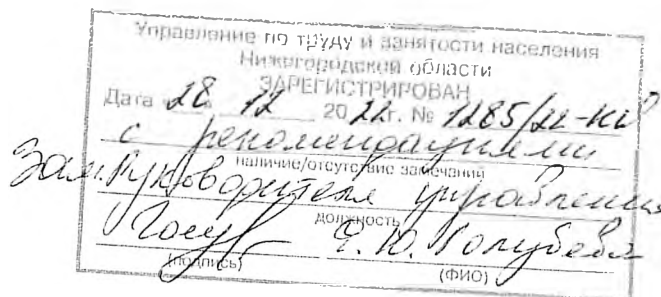 Управление по труду и занятости населения
Нижегородской области
ЗАРЕГИСТРИРОВАН
Дата 28 12 2022г. № 1285/22-КД
с рекомендациями
наличие/отсутствие замечаний
Зам. Руководителя управления
должность
Голубева
(подпись) (ФИО)